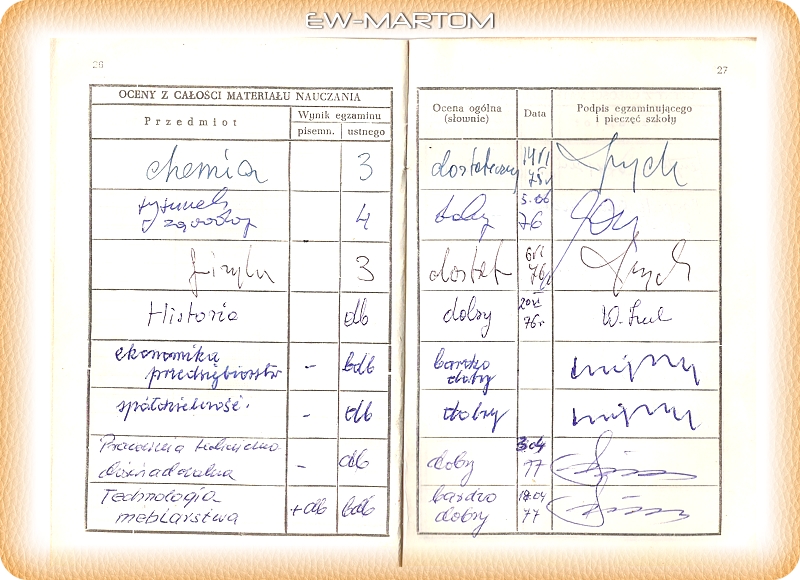 EW-MARTOM
26
OCENY Z CAŁOŚCI MATERIAŁU NAUCZANIA
Przedmiot
Wynik egzaminu
pisemn. ustnego
chemia 3
rysunek
zawodowy 4
fizyka 3
Historia db
ekonomika
przedsiębiorstw - bdb
spółdzielczość. - db
Pracownia
doświadczalna - db
Technologia
meblarstwa +db bdb
27
Ocena ogólna
(słownie)
Data
Podpis egzaminującego
i pieczęć szkoły
dostateczny 14 VI
75 r
dobry 5.06
76
dostat 6 VI
76 r
dobry 20 VI
76 r
bardzo
dobry
dobry
dobry 3.04
77
bardzo
dobry 18.04
77